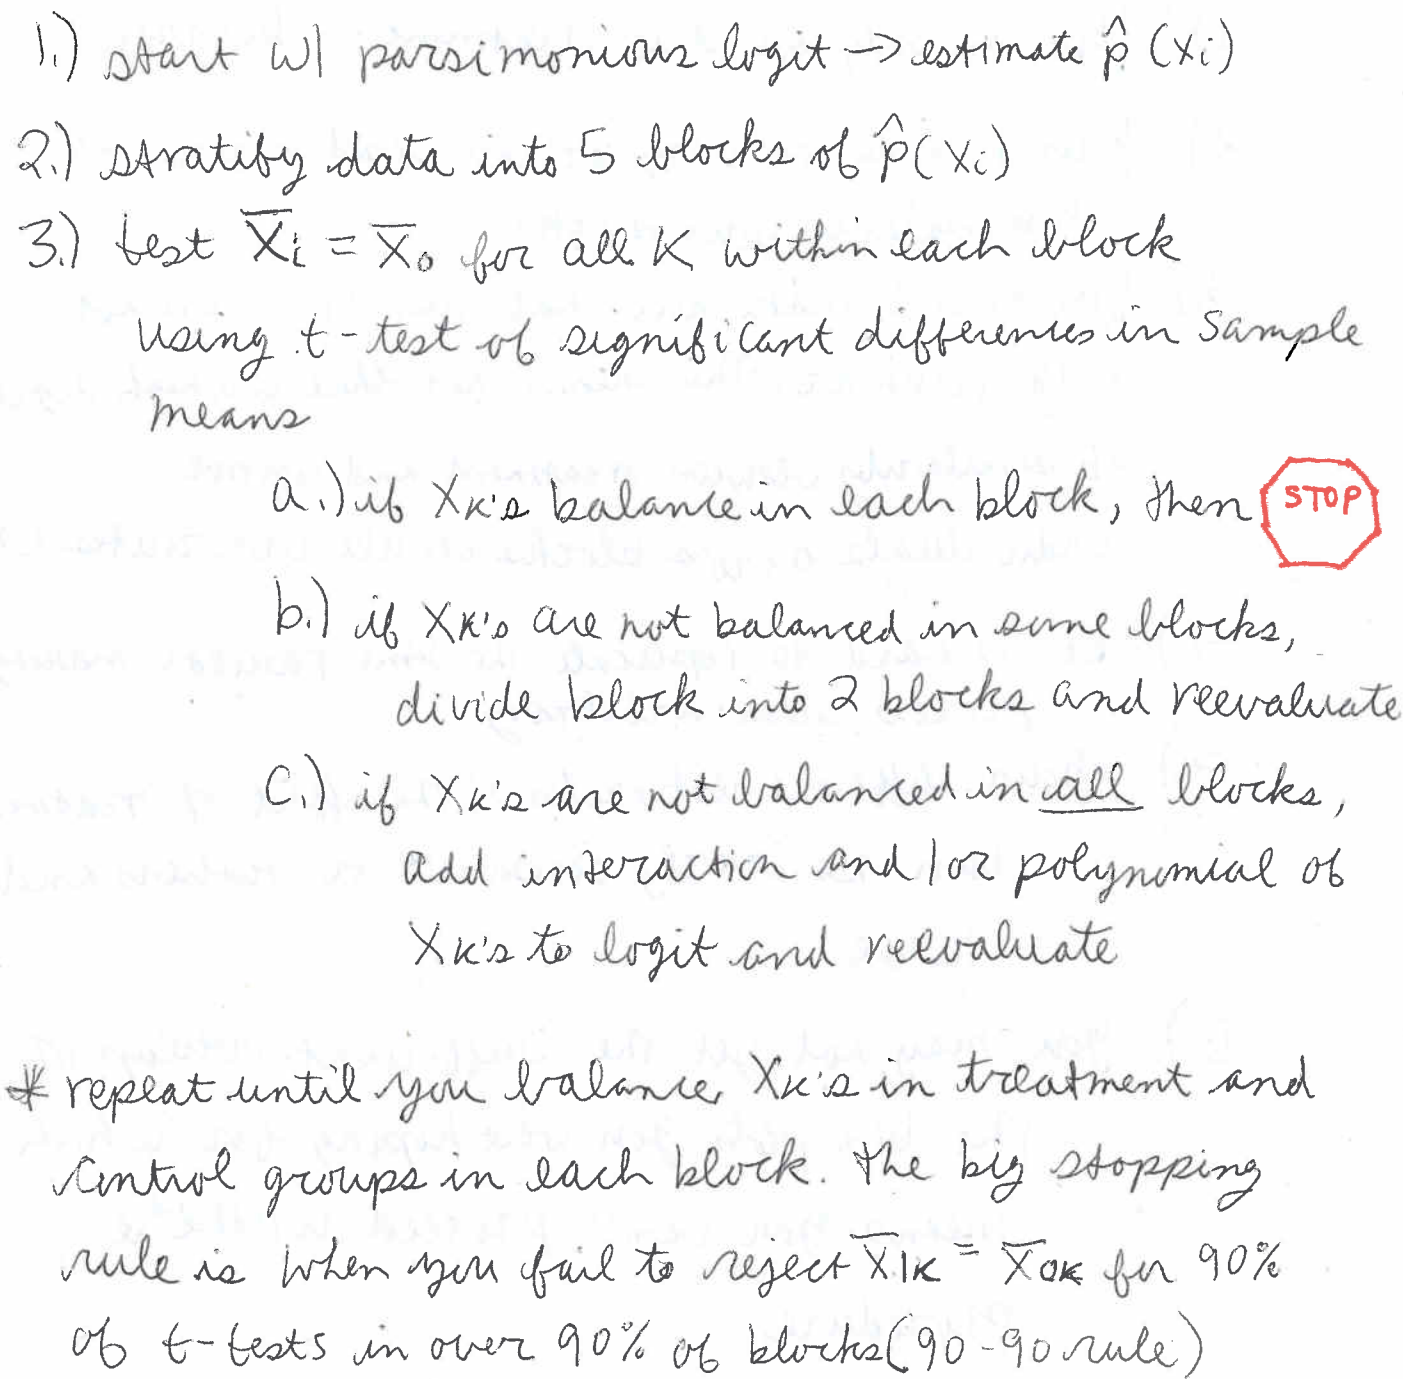 1.) start w/ parsimonious logit → estimate p̂ (Xi)
2.) stratify data into 5 blocks of p̂(Xi)
3.) test X̄i = X̄0 for all K within each block
using t-test of significant differences in sample
means
a.) if XK's balance in each block, then STOP
b.) if XK's are not balanced in some blocks,
divide block into 2 blocks and reevaluate
C.) if XK's are not balanced in all blocks,
add interaction and/or polynomial of
XK's to logit and reevaluate
* repeat until you balance XK's in treatment and
control groups in each block. The big stopping
rule is when you fail to reject X̄1K = X̄0K for 90%
of t-tests in over 90% of blocks (90-90 rule)